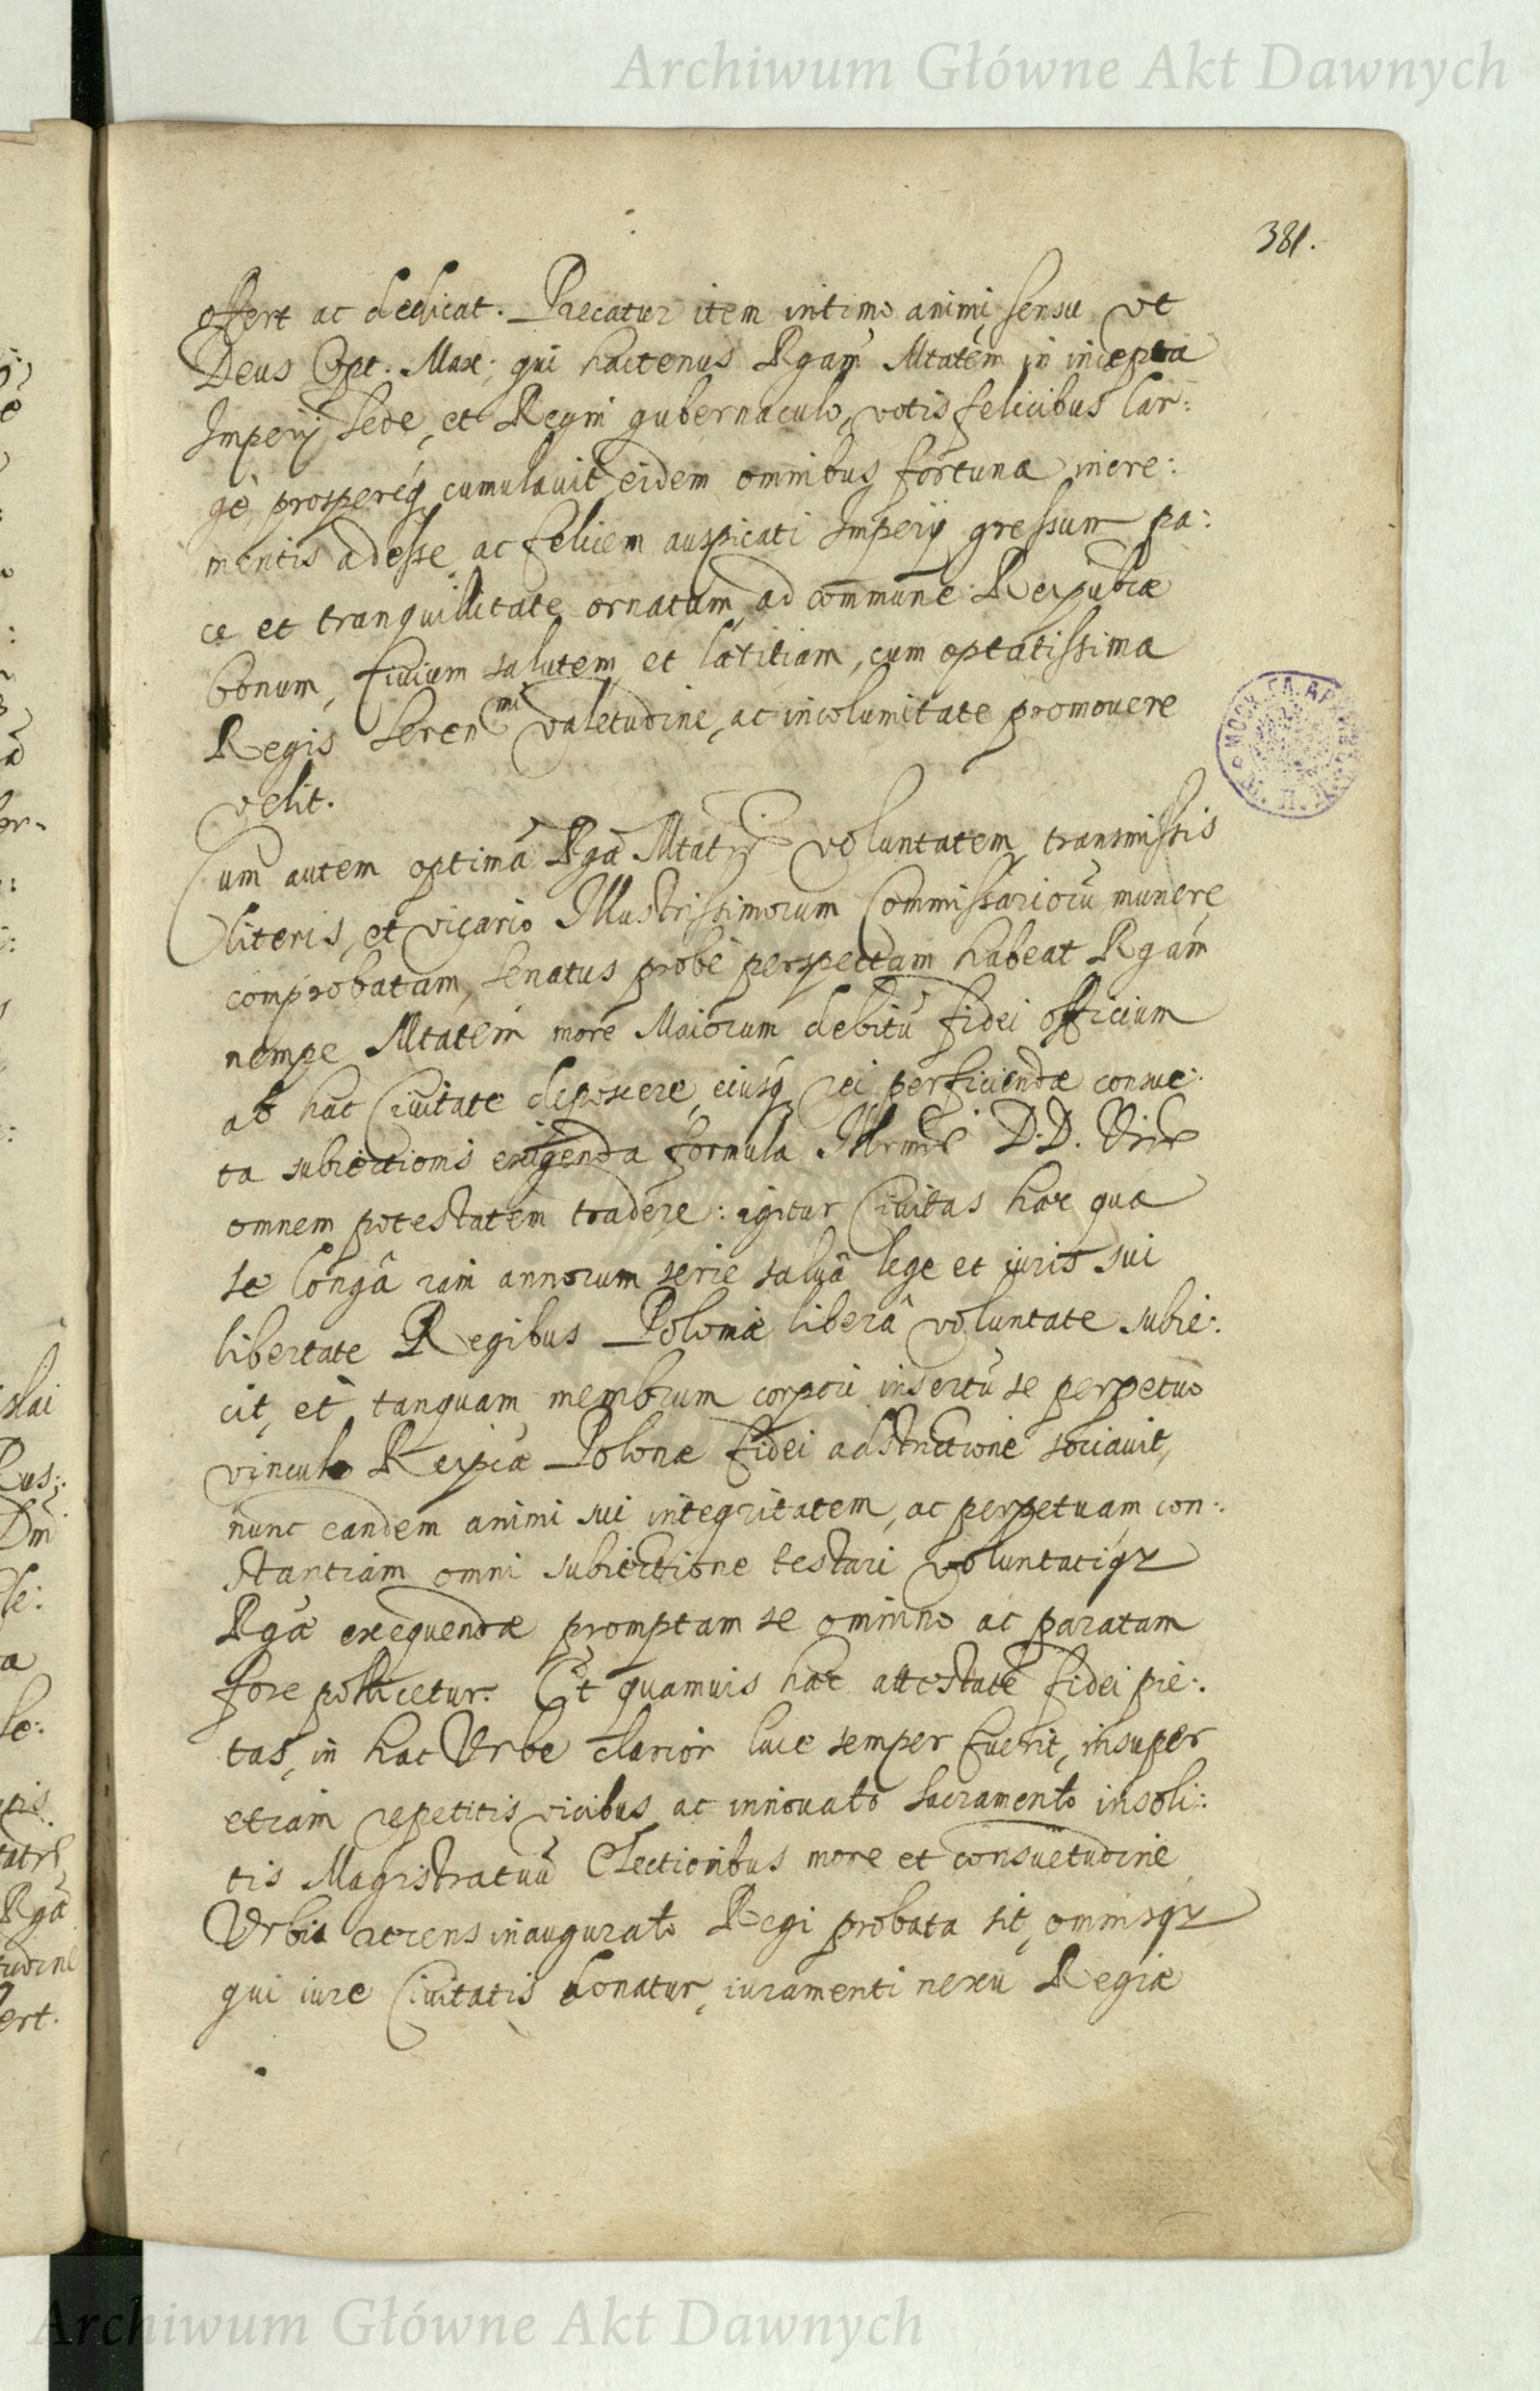 Archiwum Główne Akt Dawnych
381.
offert ac dedicat. Precatur item intimo animi sensu vt
Deus Opt. Max: qui hactenus Rgam Mtatem in incepta
Imperij sede, et Regni gubernaculo, votis felicibus lar:
ge, prospereq; cumulauit eidem omnibus fortunæ incre:
mentis adesse, ac felicem auspicati Imperij gressum pa:
ce et tranquillitate ornatum, ad commune Reipublicæ
bonum, Ciuium salutem et lætitiam, cum optatissima
Regis Seren.mi valetudine, ac incolumitate promouere
velit.
Cum autem optimã Rgæ Mtatis voluntatem, transmissis
literis, et vicario Illustrissimorum Commissariorũ munere
comprobatam, Senatus probè perspectam habeat Rgam
nempe Mtatem more Maiorum debitũ fidei officium
ab hac Ciuitate deposcere, eiusq; rei perficiendæ consue:
ta subiectionis exigenda formula Illrmis D.D. Vris
omnem potestatem tradere: igitur Ciuitas hæc quæ
se longâ iam annorum serie saluâ lege et iuris sui
libertate Regibus Poloniæ liberâ voluntate subie:
cit, et tanquam membrum corpori insertũ se perpetuo
vinculo Reipcæ Polonæ fidei adstrictione sociauit,
nunc eandem animi sui integritatem, ac perpetuam con:
stantiam omni subiectione testari voluntatiq;
Rgæ exequendæ promptam se omnino ac paratam
fore pollicetur. Et quamuis hæc attestatæ fidei pie:
tas, in hac Vrbe clarior luce semper fuerit, insuper
etiam repetitis vicibus ac innouato Sacramento insoli:
tis Magistratuũ Electionibus more et consuetudine
Vrbis recens inaugurato Regi probata sit, omnisq;
qui iure Ciuitatis donatur, iuramenti nexu Regiæ
Archiwum Główne Akt Dawnych